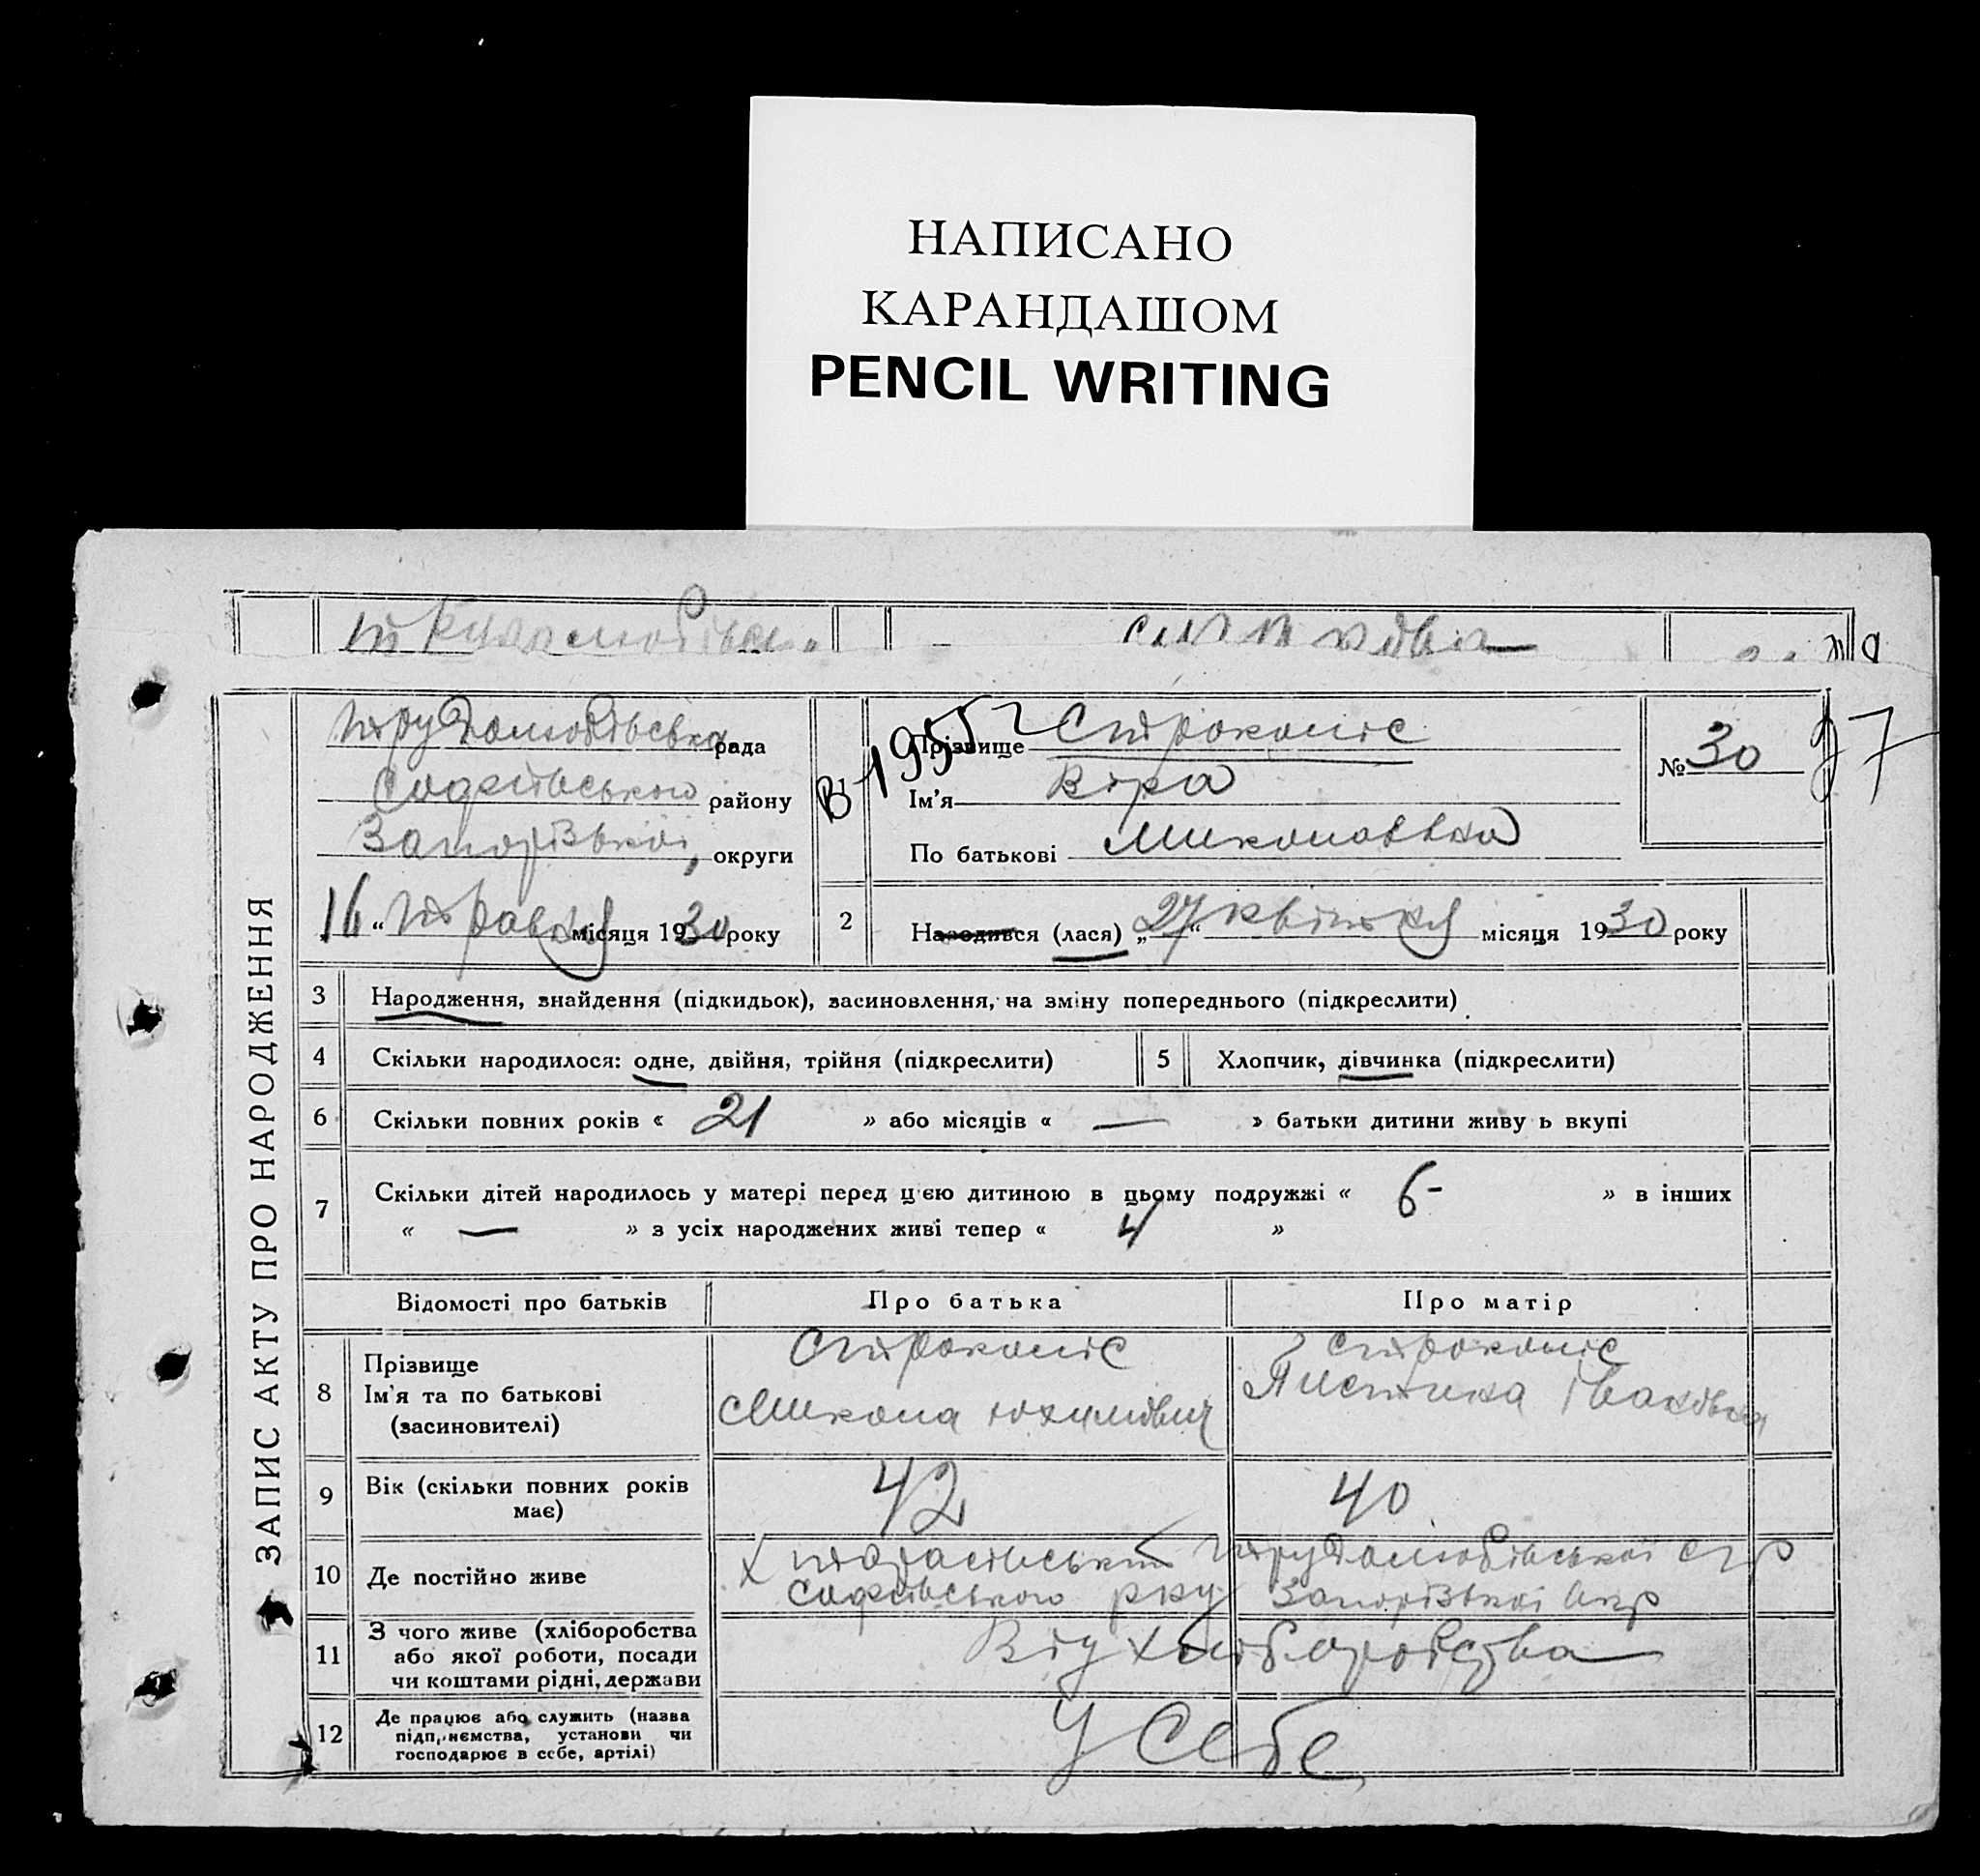 НАПИСАНО
КАРАНДАШОМ
PENCIL WRITING
ЗАПИС АКТУ ПРО НАРОДЖЕННЯ
Трудолюбівська рада
Софіївського району
Запорізької, округи
„16“ Травня місяця 1930 року
В-1955г
Прізвище Строколіс
Ім'я Віра
По батькові Миколаівна
№ 30
97
2 Народився (лася) „27“ квітня місяця 1930 року
3 Народження, знайдення (підкидьок), засиновлення, на зміну попереднього (підкреслити)
4 Скільки народилося: одне, двійня, трійня (підкреслити)
5 Хлопчик, дівчинка (підкреслити)
6 Скільки повних років « 21 » або місяців « — » батьки дитини живу ь вкупі
7 Скільки дітей народилось у матері перед цією дитиною в цьому подружжі « 6- » в інших
« — » з усіх народжених живі тепер « 4 »
Відомості про батьків Про батька Про матір
8 Прізвище
Ім'я та по батькові
(засиновителі)
Строколіс
Микола Юхимович
Строколіс
Іванівна
9 Вік (скільки повних років
має)
42
40
10 Де постійно живе
х Тарасівський Трудолюбівської с/р
Софіївського р-ну Запорізької окр
11 З чого живе (хліборобства
або якої роботи, посади
чи коштами рідні, держави
Від хліборобства
12 Де працює або служить (назва
підприємства, установи чи
господарює в себе, артілі)
У себе